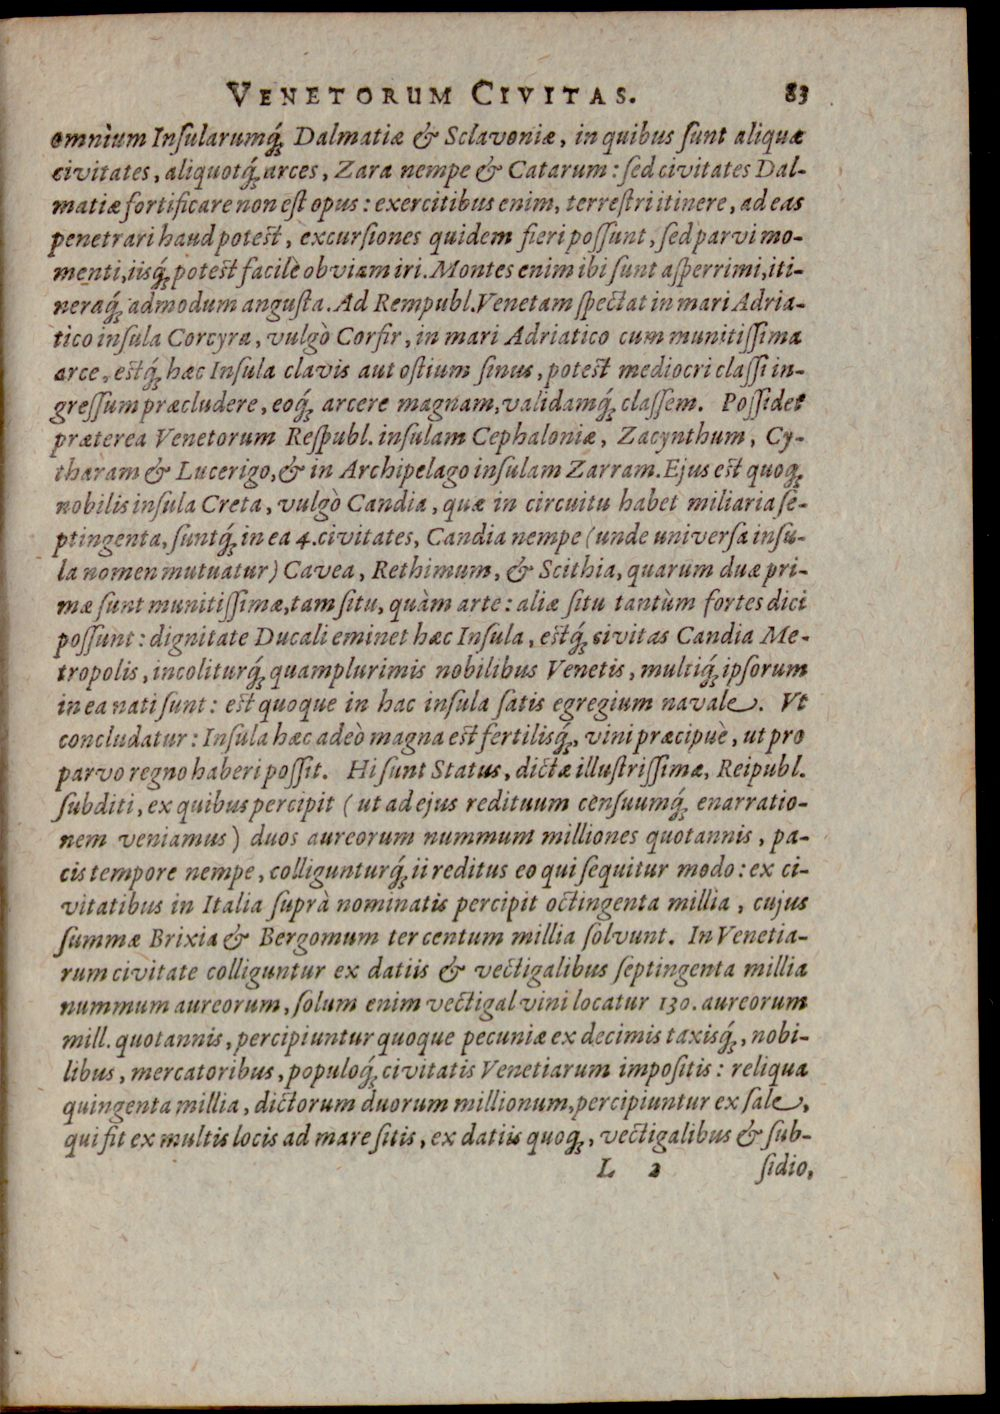 VENETORUM CIVITAS. 83
omnium Inſularumq́ꝫ Dalmatiæ & Sclavoniæ, in quibus ſunt aliquæ
civitates, aliquotq́ꝫ arces, Zara nempe & Catarum: ſed civitates Dal-
matiæ fortificare non eſt opus: exercitibus enim, terreſtri itinere, ad eas
penetrari haud poteſt, excurſiones quidem fieri poſſunt, ſed parvi mo-
menti, iisq́ꝫ poteſt facilè obviam iri. Montes enim ibi ſunt aſperrimi, iti-
neraq́ꝫ admodum anguſta. Ad Rempubl. Venetam ſpectat in mari Adria-
tico inſula Corcyra, vulgò Corfir, in mari Adriatico cum munitiſſima
arce, eſtq́ꝫ hæc Inſula clavis aut oſtium ſinus, poteſt mediocri claſſi in-
greſſum præcludere, eoq́ꝫ arcere magnam, validamq́ꝫ claſſem. Poſſidet
præterea Venetorum Reſpubl. inſulam Cephaloniæ, Zacynthum, Cy-
tharam & Lucerigo, & in Archipelago inſulam Zarram. Ejus eſt quoqꝫ
nobilis inſula Creta, vulgò Candia, quæ in circuitu habet miliaria ſe-
ptingenta, ſuntq́ꝫ in ea 4. civitates, Candia nempe (unde univerſa inſu-
la nomen mutuatur) Cavea, Rethimum, & Scithia, quarum duæ pri-
mæ ſunt munitiſſimæ, tam ſitu, quàm arte: aliæ ſitu tantùm fortes dici
poſſunt: dignitate Ducali eminet hæc Inſula, eſtq́ꝫ civitas Candia Me-
tropolis, incoliturq́ꝫ quamplurimis nobilibus Venetis, multiq́ꝫ ipſorum
in ea nati ſunt: eſt quoque in hac inſula ſatis egregium navale. Vt
concludatur: Inſula hæc adeò magna eſt fertilisq́ꝫ, vini præcipuè, ut pro
parvo regno haberi poſſit. Hi ſunt Status, dictæ illuſtriſſimæ, Reipubl.
ſubditi, ex quibus percipit (ut ad ejus redituum cenſuumq́ꝫ enarratio-
nem veniamus) duos aureorum nummum milliones quotannis, pa-
cis tempore nempe, colligunturq́ꝫ ii reditus eo qui ſequitur modo: ex ci-
vitatibus in Italia ſuprà nominatis percipit octingenta millia, cujus
ſummæ Brixia & Bergomum ter centum millia ſolvunt. In Venetia-
rum civitate colliguntur ex datiis & vectigalibus ſeptingenta millia
nummum aureorum, ſolum enim vectigal vini locatur 130. aureorum
mill. quotannis, percipiuntur quoque pecuniæ ex decimis taxisq́ꝫ, nobi-
libus, mercatoribus, populoq́ꝫ civitatis Venetiarum impoſitis: reliqua
quingenta millia, dictorum duorum millionum, percipiuntur ex ſale,
qui fit ex multis locis ad mare ſitis, ex datiis quoqꝫ, vectigalibus & ſub-
L 2 ſidio,